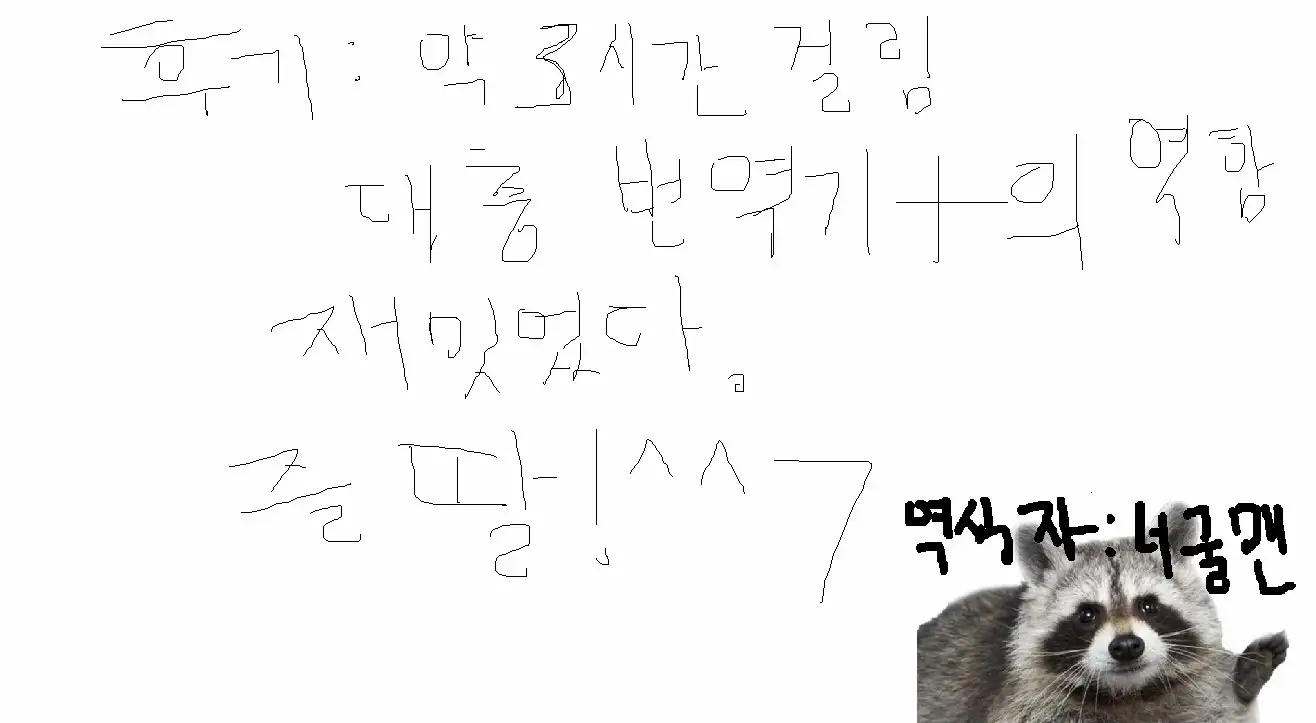 후기: 약 3시간 걸림
대충 번역기+의역함
재밌었다.
즐딸!^^7
역식자: 너굴맨